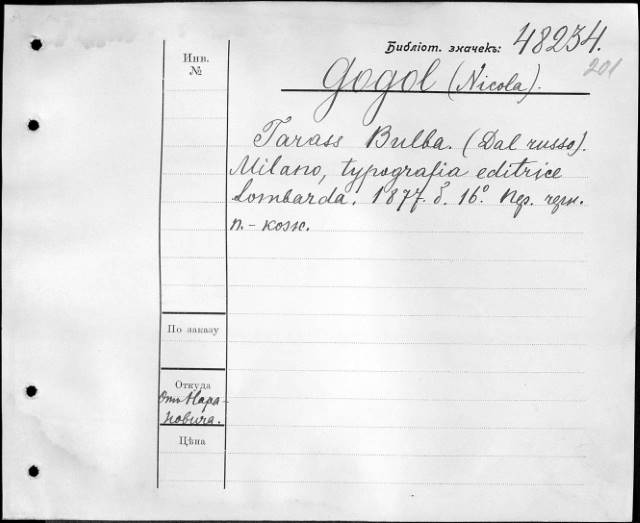 Библіот. значекъ: 48234.
201
Инв.
№
Gogol (Nicola).
Tarass Bulba. (Dal russo).
Milano, typografia editrice
Lombarda. 1877. 8. 16° Пер. черн.
п. - кож.
По заказу
Откуда
Отъ Мара-
новича.
Цѣна